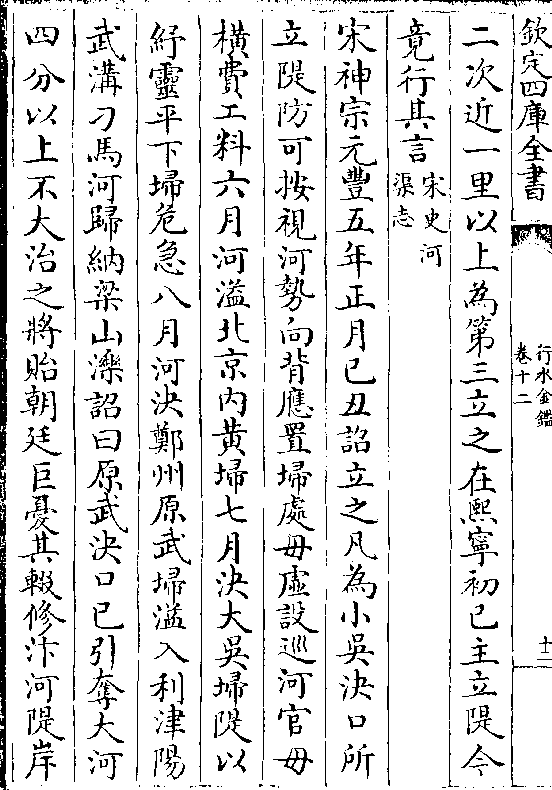 欽定四庫全書
行水金鑑
卷十二
十二
二次近一里以上為第三立之在熙寧初已主立隄今
竟行其言宋史河渠志
宋神宗元豐五年正月已丑詔立之凡為小吳決口所
立隄防可按視河勢向背應置埽處毋虛設巡河官毋
橫費工料六月河溢北京内黄埽七月決大吳埽隄以
紓靈平下埽危急八月河決鄭州原武埽溢入利津陽
武溝刁馬河歸納梁山濼詔曰原武決口已引奪大河
四分以上不大治之將貽朝廷巨憂其輟修汴河隄岸